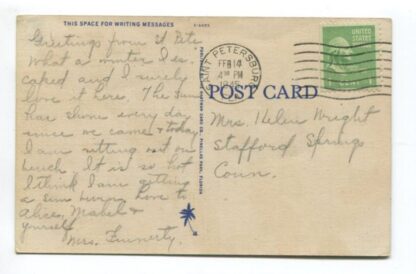 THIS SPACE FOR WRITING MESSAGES
Greetings from "St Pete"
What a winter I es-
caped and I surely
love it here. The sun
has shone every day
since we came & today
I am sitting out on
bench. It is so hot
I think I am getting
a sun burn. Love to
Alice, Mabel &
yourself
Mrs. Finnerty
SAINT PETERSBURG
FEB 14
4 PM
UNITED
STATES
POST CARD
Mrs. Helen Wright
Stafford Springs
Conn.